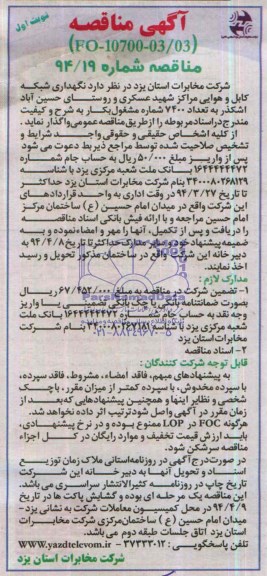 نوبت اول
آگهی مناقصه
(FO-10700-03/03)
مناقصه شماره ۹۴/۱۹
شرکت مخابرات استان یزد در نظر دارد نگهداری شبکه
کابل و هوایی مراکز شهید عسکری و روستای حسین آباد
اشکذر به تعداد ۷۴۰۰ شماره مشغول بکار به شرح و کیفیت
مندرج در اسناد مربوطه را از طریق مناقصه عمومی واگذار نماید.
از کلیه اشخاص حقیقی و حقوقی واجد شرایط و
تشخیص صلاحیت شده توسط مراجع ذیربط دعوت می شود
پس از واریز مبلغ ۵۰/۰۰۰ ریال به حساب جام شماره
۱۶۴۴۴۴۴۴۷۲ بانک ملت شعبه مرکزی یزد با شناسه
۳۴۰۰۰۸۰۲۶۸۱۲۹ بنام شرکت مخابرات استان یزد حداکثر
تا تاریخ ۹۴/۳/۲۷ در وقت اداری به واحد قراردادهای
این شرکت واقع در میدان امام حسین (ع) ساختمان مرکز
امام حسین مراجعه و با ارائه فیش بانکی اسناد مناقصه
را دریافت و پس از تکمیل، آنها را مهر و امضاء نموده و به
ضمیمه پیشنهاد خود و سایر مدارک حداکثر تا تاریخ ۹۴/۴/۸ به
دبیرخانه این شرکت واقع در ساختمان مذکور تحویل و رسید
اخذ نمایند.
مدارک لازم :
تضمین شرکت در مناقصه به مبلغ ۶۷/۴۵۲/۰۰۰ ریال
بصورت ضمانتنامه بانکی یا چک بانکی تضمینی یا واریز
وجه نقد به حساب جام شماره ۱۶۴۴۴۴۴۴۷۲ بانک ملت
شعبه مرکزی یزد با شناسه بنام شرکت
مخابرات استان یزد
۲- اسناد مناقصه
قابل توجه شرکت کنندگان :
به پیشنهادهای مبهم، فاقد امضاء، مشروط، فاقد سپرده،
با سپرده مخدوش، با سپرده کمتر از میزان مقرر، با چک
شخصی و نظایر اینها و همچنین پیشنهادهایی که بعد از
زمان مقرر در آگهی واصل شود ترتیب اثر داده نخواهد شد.
هرگونه FOC در LOP ممنوع بوده و در نرخ پیشنهادی،
باید ارزش قیمت تخفیف و موارد رایگان در کل اجزاء
مناقصه سرشکن شود.
در صورت درج آگهی در روزنامه استانی ملاک زمان توزیع
اسناد و تحویل آنها به دبیرخانه این شرکت
تاریخ چاپ در روزنامه کثیرالانتشار سراسری می باشد.
این مناقصه یک مرحله ای بوده و گشایش پاکت ها در تاریخ
۹۴/۴/۹ در محل کمیسیون معاملات شرکت به نشانی یزد-
میدان امام حسین (ع) ساختمان مرکزی شرکت مخابرات
استان یزد اتاق جلسات طبقه دوم می باشد.
تلفن پاسخگویی: ۳۷۲۳۳۰۱۲ - www.yazdtelecom.ir
شرکت مخابرات استان یزد